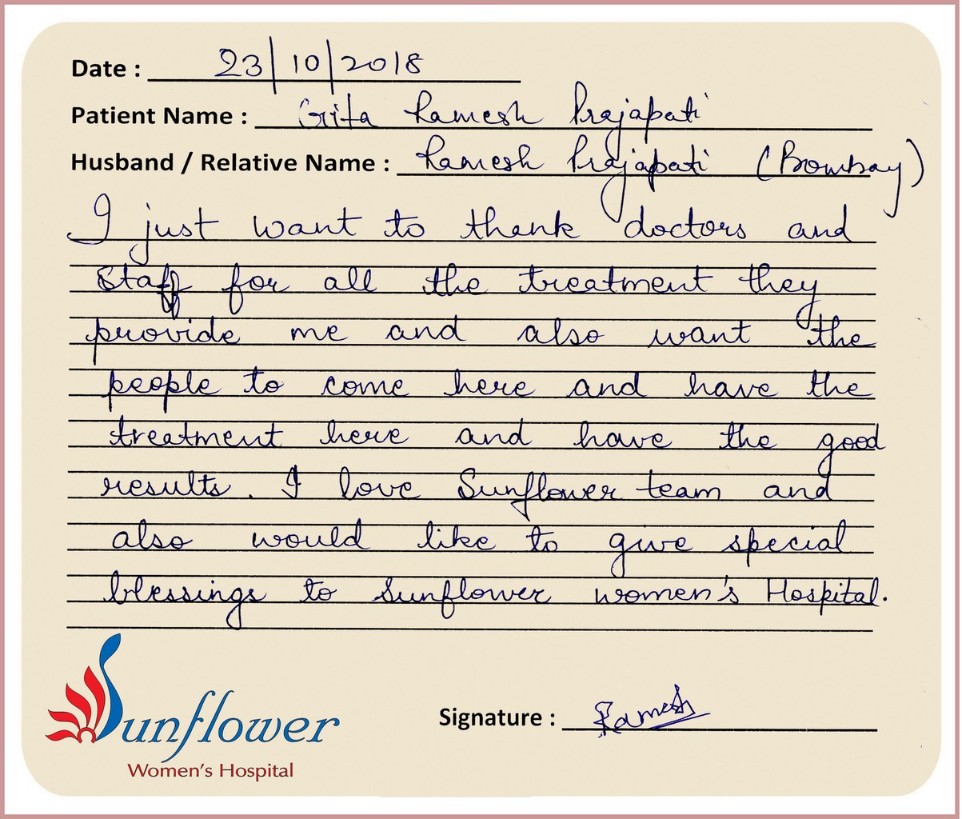 Date : 23/10/2018
Patient Name : Gita Ramesh Prajapati
Husband / Relative Name : Ramesh Prajapati (Bombay)
I just want to thank doctors and
staff for all the treatment they
provide me and also want the
people to come here and have the
treatment here and have the good
results. I love Sunflower team and
also would like to give special
blessings to Sunflower women's Hospital.
Sunflower
Women's Hospital
Signature : Ramesh